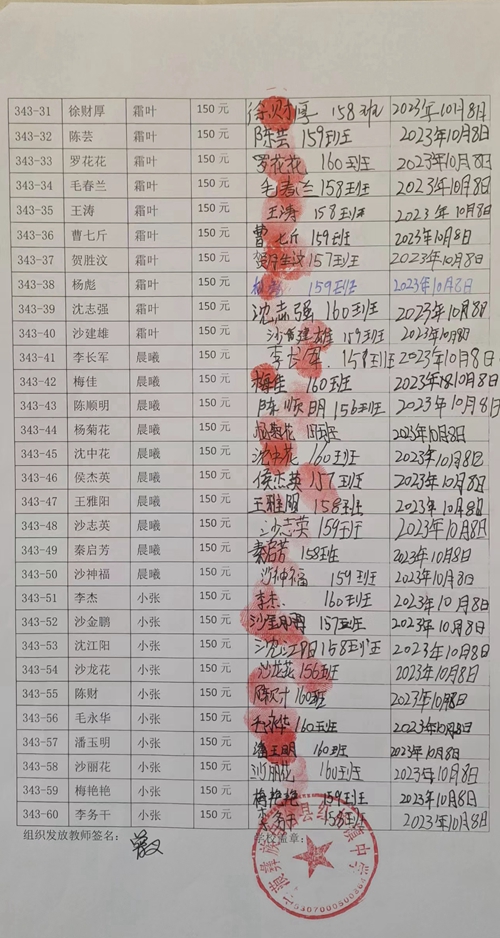 343-31 徐财厚 霜叶 150 元 徐财厚 158班 2023年10月8日
343-32 陈芸 霜叶 150 元 陈芸 159班 2023年10月8日
343-33 罗花花 霜叶 150 元 罗花花 160班 2023年10月8日
343-34 毛春兰 霜叶 150 元 毛春兰 158班 2023年10月8日
343-35 王涛 霜叶 150 元 王涛 158班 2023年10月8日
343-36 曹七斤 霜叶 150 元 曹七斤 159班 2023年10月8日
343-37 贺胜汶 霜叶 150 元 贺胜汶 157班 2023年10月8日
343-38 杨彪 霜叶 150 元 杨彪 159班 2023年10月8日
343-39 沈志强 霜叶 150 元 沈志强 160班 2023年10月8日
343-40 沙建雄 霜叶 150 元 沙建雄 159班 2023年10月8日
343-41 李长军 晨曦 150 元 李长军 158班 2023年10月8日
343-42 梅佳 晨曦 150 元 梅佳 160班 2023年10月8日
343-43 陈顺明 晨曦 150 元 陈顺明 156班 2023年10月8日
343-44 杨菊花 晨曦 150 元 杨菊花 2023年10月8日
343-45 沈中花 晨曦 150 元 沈中花 160班 2023年10月8日
343-46 侯杰英 晨曦 150 元 侯杰英 157班 2023年10月8日
343-47 王雅阳 晨曦 150 元 王雅阳 158班 2023年10月8日
343-48 沙志英 晨曦 150 元 沙志英 159班 2023年10月8日
343-49 秦启芳 晨曦 150 元 秦启芳 158班 2023年10月8日
343-50 沙神福 晨曦 150 元 沙神福 159班 2023年10月8日
343-51 李杰 小张 150 元 李杰 160班 2023年10月8日
343-52 沙金鹏 小张 150 元 沙金鹏 157班 2023年10月8日
343-53 沈江阳 小张 150 元 沈江阳 158班 2023年10月8日
343-54 沙龙花 小张 150 元 沙龙花 156班 2023年10月8日
343-55 陈财 小张 150 元 陈财 160班 2023年10月8日
343-56 毛永华 小张 150 元 毛永华 160班 2023年10月8日
343-57 潘玉明 小张 150 元 潘玉明 160班 2023年10月8日
343-58 沙丽花 小张 150 元 沙丽花 160班 2023年10月8日
343-59 梅艳艳 小张 150 元 梅艳艳 159班 2023年10月8日
343-60 李务干 小张 150 元 李务干 158班 2023年10月8日
组织发放教师签名： 学校盖章：